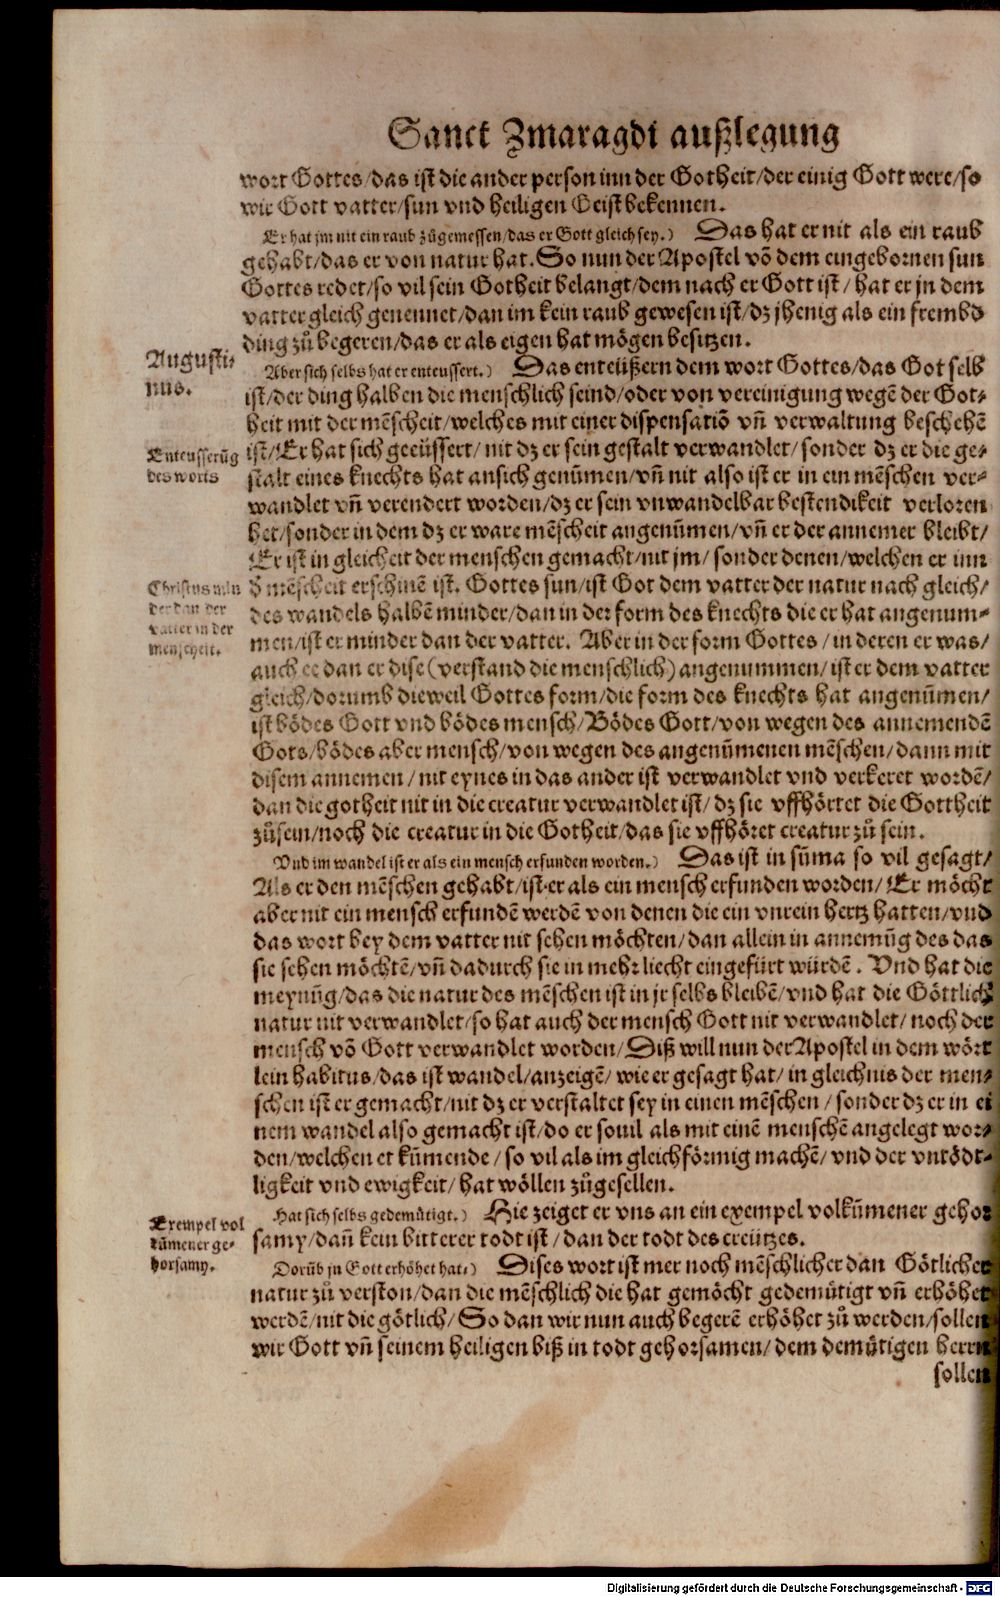 Sanct Zmaragdi außlegung
wort Gottes/das ist die ander person inn der Gotheit/der einig Gott were/so
wir Gott vatter/sun vnd heiligen Geist bekennen.
Er hat jm nit ein raub zůgemessen/das er Gott gleich sey.) Das hat er nit als ein raub
gehabt/das er von natur hat. So nun der Apostel vō dem eingebornen sun
Gottes redet/so vil sein Gotheit belangt/dem nach er Gott ist/ hat er jn dem
vatter gleich genennet/dan im kein raub gewesen ist/dz jhenig als ein frembd
ding zů begeren/das er als eigen hat mögen besitzen.
Augusti⸗
nus.
Aber sich selbs hat er enteussert.) Das enteüßern dem wort Gottes/das Got selb
ist/der ding halben die menschlich seind/oder von vereinigung wegē der Got⸗
heit mit der mēscheit/welches mit einer dispensatiō vñ verwaltung beschehē
Enteusserūg
des worts
ist/Er hat sich geeüssert/ nit dz er sein gestalt verwandlet/sonder dz er die ge⸗
stalt eines knechts hat ansich genūmen/vñ nit also ist er in ein mēschen ver⸗
wandlet vñ verendert worden/dz er sein vnwandelbar bestendikeit verloren
het/sonder in dem dz er ware mēscheit angenūmen/vñ er der annemer bleibt/
Er ist in gleicheit der menschen gemacht/nit jm/ sonder denen/welchen er inn
Christus min
der dan der
vatter in der
menscheit.
d̄ mēscheit erschinē ist. Gottes sun/ist Got dem vatter der natur nach gleich/
des wandels halbē minder/dan in der form des knechts die er hat angenum⸗
men/ist er minder dan der vatter. Aber in der form Gottes/in deren er was/
auch ee dan er dise (verstand die menschlich) angenummen/ist er dem vatter
gleich/dorumb dieweil Gottes form/die form des knechts hat angenūmen/
ist bödes Gott vnd bödes mensch/Bödes Gott/von wegen des annemendē
Gots/bödes aber mensch/von wegen des angenūmenen mēschen/dann mit
disem annemen/nit eynes in das ander ist verwandlet vnd verkeret wordē/
dan die gotheit nit in die creatur verwandlet ist/dz sie vffhörtet die Gottheit
zů sein/noch die creatur in die Gotheit/das sie vffhöret creatur zů sein.
Vnd im wandel ist er als ein mensch erfunden worden.) Das ist in sūma so vil gesagt/
Als er den mēschen gehabt/ist er als ein mensch erfunden worden/Er möcht
aber nit ein mensch erfundē werdē von denen die ein vnrein hertz hatten/vnd
das wort bey dem vatter nit sehen möchten/dan allein in annemūg des das
sie sehen möchtē/vñ dadurch sie in mehr liecht eingefürt würdē. Vnd hat die
meynūg/das die natur des mēschen ist in jr selbs bleibē/vnd hat die Göttlich
natur nit verwandlet/so hat auch der mensch Gott nit verwandlet/noch der
mensch vō Gott verwandlet worden/Diß will nun der Apostel in dem wört
lein habitus/das ist wandel/anzeigē/ wie er gesagt hat/in gleichnis der men⸗
schen ist er gemacht/nit dz er verstaltet sey in einen mēschen/sonder dz er in ei
nem wandel also gemacht ist/do er souil als mit einē menschē angelegt wor⸗
den/welchen er kūmende/so vil als im gleichförmig machē/vnd der vntödt⸗
ligkeit vnd ewigkeit/hat wöllen zůgesellen.
Exempel vol
kūmener ge⸗
horsamy.
Hat sich selbs gedemütigt.) Hie zeiget er vns an ein exempel volkūmener gehor
samy/dañ kein bitterer todt ist/dan der todt des creützes.
Dorūb jn Gott erhöhet hat.) Dises wort ist mer noch mēschlicher dan Götlicher
natur zů verston/dan die mēschlich die hat gemöcht gedemütigt vñ erhöhet
werdē/nit die götlich/So dan wir nun auch begerē erhöhet zů werden/sollen
wir Gott vñ seinem heiligen biß in todt gehorsamen/dem demütigen herrn
sollen
Digitalisierung gefördert durch die Deutsche Forschungsgemeinschaft - DFG